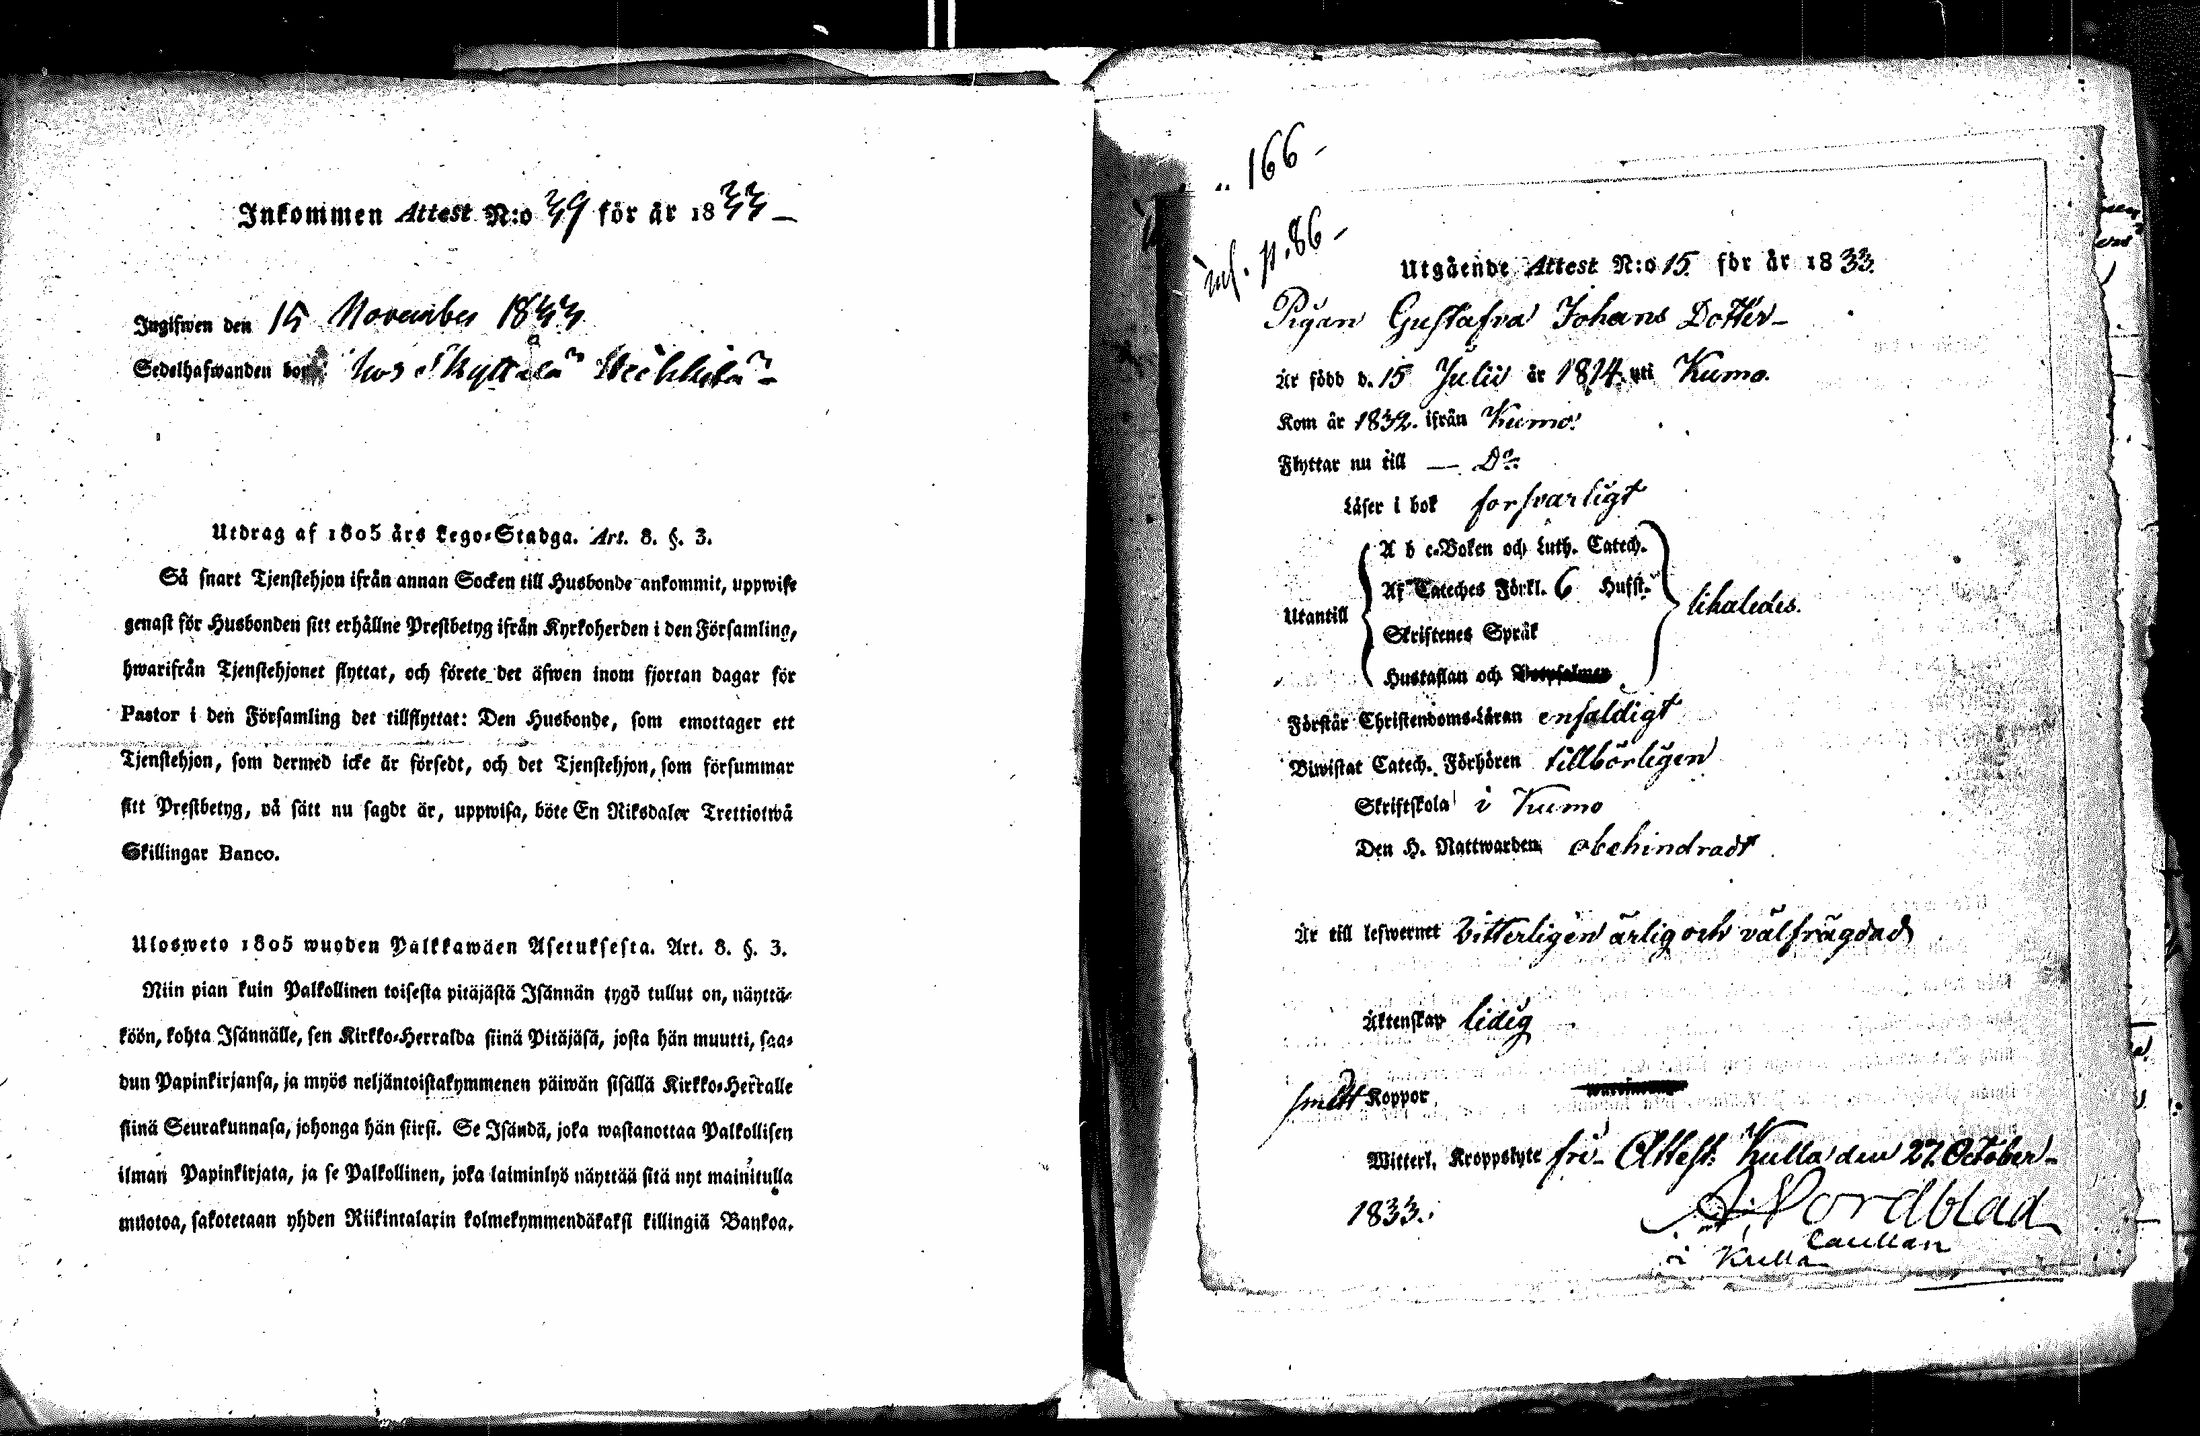 Inkommen Attest N:o 39 för år 1833 –
Ingifwen den 15 November 1833
Sedelhafwanden bor hos
Utdrag af 1805 års Lego-Stadga. Art. 8. §. 3.
Så snart Tjenstehjon ifrån annan Socken till Husbonde ankommit, uppwise
genast för Husbonden sitt erhållne Prestbetyg ifrån Kyrkoherden i den Församling,
hwarifrån Tjenstehjonet flyttat, och förete det äfwen inom fjortan dagar för
Pastor i den Församling det tillflyttat: Den Husbonde, som emottager ett
Tjenstehjon, som dermed icke är försedt, och det Tjenstehjon, som försummar
sitt Prestbetyg, på sätt nu sagdt är, uppwisa, böte En Riksdaler Trettiotwå
Skillingar Banco.
Ulosweto 1805 wuoden Palkkawäen Asetuksesta. Art. 8. §. 3.
Niin pian kuin Palkollinen toisesta pitäjästä Isännän tygö tullut on, näyttä-
köön, kohta Isännälle, sen Kirkko-Herralda siinä Pitäjäsä, josta hän muutti, saa-
dun Papinkirjansa, ja myös neljäntoistakymmenen päiwän sisällä Kirkko-Herralle
siinä Seurakunnasa, johonga hän siirsi. Se Isändä, joka wastanottaa Palkollisen
ilman Papinkirjata, ja se Palkollinen, joka laiminlyö näyttää sitä nyt mainitulla
muotoa, sakotetaan yhden Riikintalarin kolmekymmendäkaksi killingiä Bankoa.
166 –
inf. p. 86 –
Utgående Attest N:o 15. för år 1833.
Pigan Gustafva Johans Dotter –
Är född d. 15 Julii år 1814. uti Kumo.
Kom år 1832. ifrån Kumo.
Flyttar nu till — Do.
Läser i bok forsvarligt
A b c-Boken och Luth. Catech.
Af Cateches Förkl. 6 Hufst.
Utantill likaledes.
Skriftenes Språk
Hustaflan och
Förstår Christendoms-Läran enfaldigt
Biwistat Catech. Förhören tillbörligen
Skriftskola i Kumo
Den H. Nattwarden obehindradt
Är till lefwernet vitterligen ärlig och välfrägdad
Äktenskap ledig
Koppor
Witterl. Kroppslyte fri – Attest. Kulla den 27. October –
1833.
Nordblad
Capellan
i Kulla